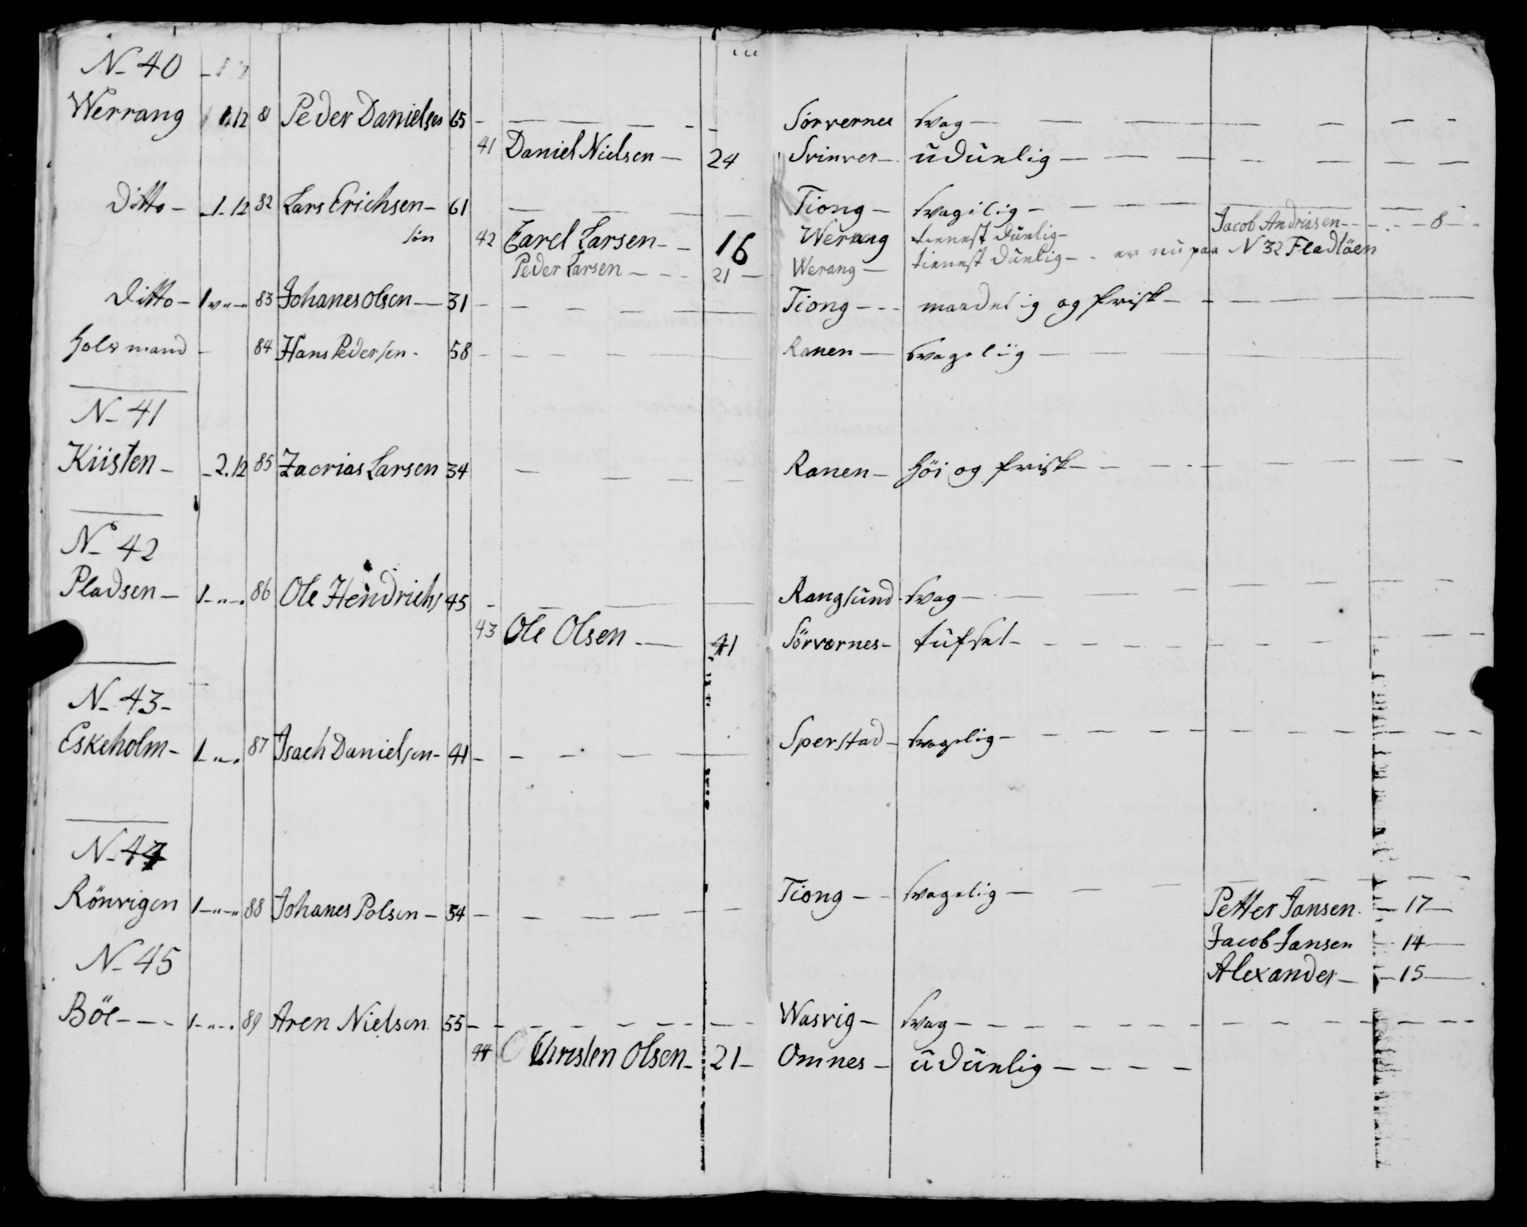 N_ 40
Werrang 1 12 81 Peder Danielsen 65 - Sørvernes svag -
41 Daniel Nielsen - 24 Svinver - uduelig -
Ditto - 1. 12 82 Lars Erichsen - 61 Tiong - svagelig -
Jacob Andriasen - 8
søn 42 Carel Larsen - 16 Werang tienest duelig -
Peder Larsen - 21 - Werang - tienest duelig - er nu paa N 32 Fladtöen
Ditto - 1 " 83 Johanes olsen - 31 - Tiong - maadelig og frisk -
huusmand - 84 Hans Pedersen - 58 - Ranen - svageliig -
N_ 41
Kiisten - 2. 12 85 Zacrias Larsen 34 - Ranen - höi og frisk -
N_ 42
Pladsen - 1 - " - 86 Ole Hendrichs 45 - Rangsund - svag -
43 Ole Olsen - 41 Sörvernes -
N_ 43 -
Eskeholm - 1 - " - 87 Isach Danielsen - 41 - Sperstad - svagelig -
N_ 44
Rönvigen 1 - " - 88 Johanes Polsen - 54 - Tiong - svagelig -
Petter Jansen - 17 -
Jacob Jansen - 14 -
N_ 45
Alexander - 15 -
Böe - 1 - " - 89 Aren Nielsen 55 - Wasvig - svag -
44 Christen Olsen - 21 - Omnes - uduelig -